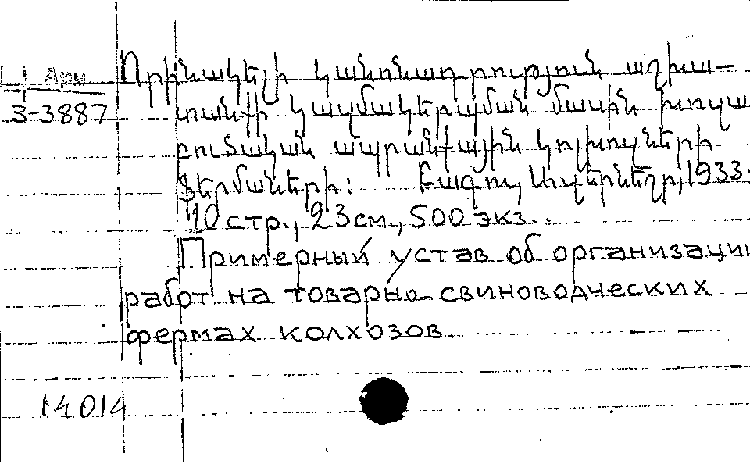 Арм Օրինակելի կանոնադրություն աշխա–
3-3887 տանքի կազմակերպման մասին խոզա
բուծական ապրանքային կոլխոզների
ֆերմաների: Բագու, Ադրբեջ, 1933.
10 стр., 23 см., 500 экз.
Примерный устав об организации
работ на товарно свиноводческих
фермах колхозов
14014